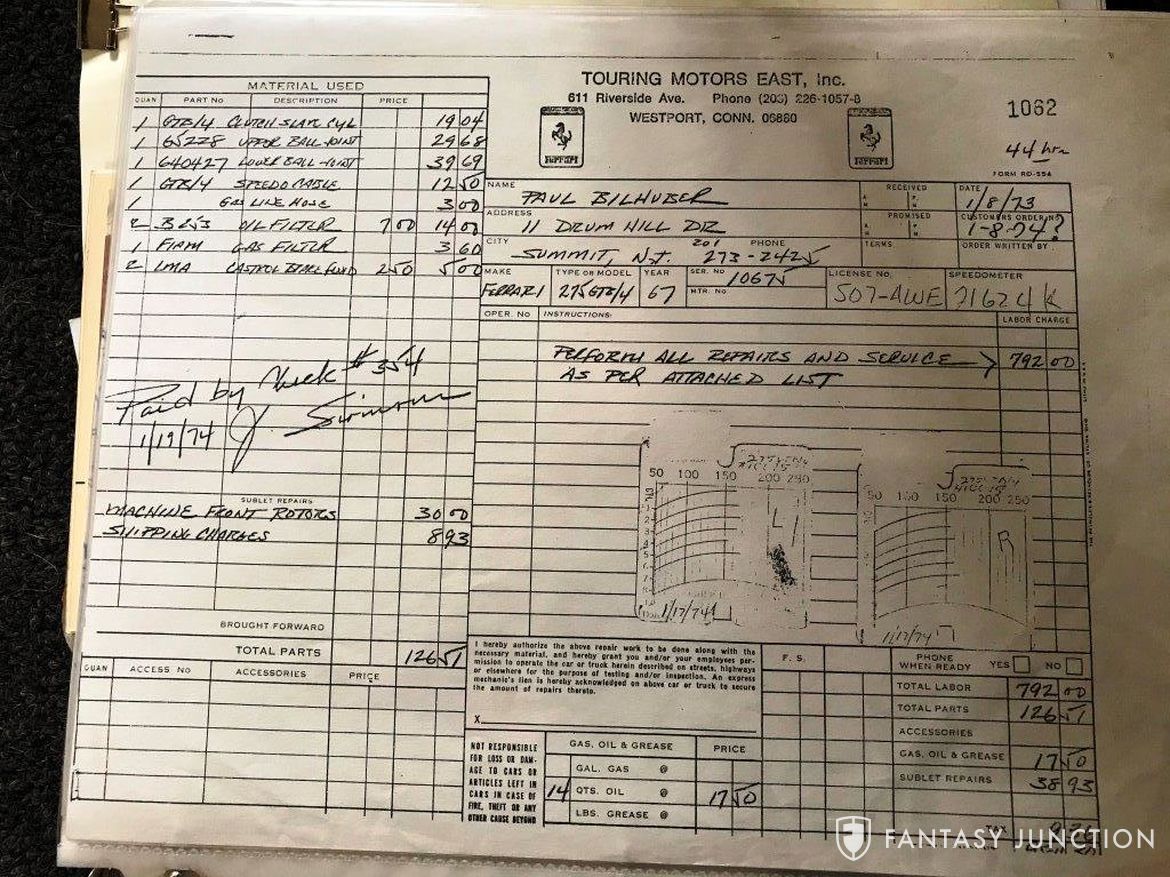 MATERIAL USED
QUAN PART No DESCRIPTION PRICE
1 GTB/4 CLUTCH SLAVE CYL 19 04
1 65228 UPPER BALL JOINT 29 68
1 640427 LOWER BALL JOINT 39 69
1 GTB/4 SPEEDO CABLE 12 50
1 GAS LINE HOSE 3 00
2 B253 OIL FILTER 7 00 14 00
1 FIAM GAS FILTER 3 60
2 LMA CASTROL FLUID 2 50 5 00
Paid by Check # 354
1/19/74 J.
SUBLET REPAIRS
MACHINE FRONT ROTORS 30 00
SHIPPING CHARGES 8 93
BROUGHT FORWARD
TOTAL PARTS 126 51
QUAN ACCESS No ACCESSORIES PRICE
TOURING MOTORS EAST, Inc.
611 Riverside Ave. Phone (203) 226-1057-8
WESTPORT, CONN. 06880
Ferrari
Ferrari
1062
44 hrs
FORM RO-554
NAME PAUL BILHUBER
RECEIVED A M P M
DATE 1/8/73
ADDRESS 11 DRUM HILL DR
PROMISED A M P M
CUSTOMERS ORDER NO.
1-8-74?
CITY SUMMIT, N.J. 201 PHONE 273-2425
TERMS
ORDER WRITTEN BY
MAKE FERRARI
TYPE OR MODEL 275 GTB/4
YEAR 67
SER. NO 10675
MTR. NO
LICENSE NO. 507-AWE
SPEEDOMETER 21624 K
OPER. No INSTRUCTIONS: LABOR CHARGE
PERFORM ALL REPAIRS AND SERVICE 792 00
AS PER ATTACHED LIST
275 GTB/4
50 100 150 200 250
L
1/17/74
275 GTB/4
50 100 150 200 250
R
1/17/74
I hereby authorize the above repair work to be done along with the
necessary material, and hereby grant you and/or your employees per-
mission to operate the car or truck herein described on streets, highways
or elsewhere for the purpose of testing and/or inspection. An express
mechanic's lien is hereby acknowledged on above car or truck to secure
the amount of repairs thereto.
X
NOT RESPONSIBLE
FOR LOSS OR DAM-
AGE TO CARS OR
ARTICLES LEFT IN
CARS IN CASE OF
FIRE, THEFT OR ANY
OTHER CAUSE BEYOND
GAS, OIL & GREASE PRICE
GAL. GAS @
14 QTS. OIL @ 17 50
LBS. GREASE @
F. S.
PHONE WHEN READY YES NO
TOTAL LABOR 792 00
TOTAL PARTS 126 51
ACCESSORIES
GAS, OIL & GREASE 17 50
SUBLET REPAIRS 38 93
TAX
FANTASY JUNCTION